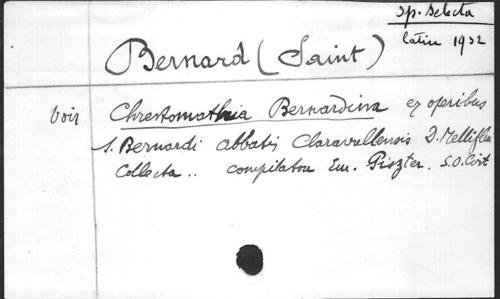 Op. selecta
latin 1932
Bernard (Saint)
Voir Chrestomathia Bernardina ex operibus
S. Bernardi abbatis Claravallensis D. Melliflui
Collecta.. compilator Em. Piszter. S.O. Cist